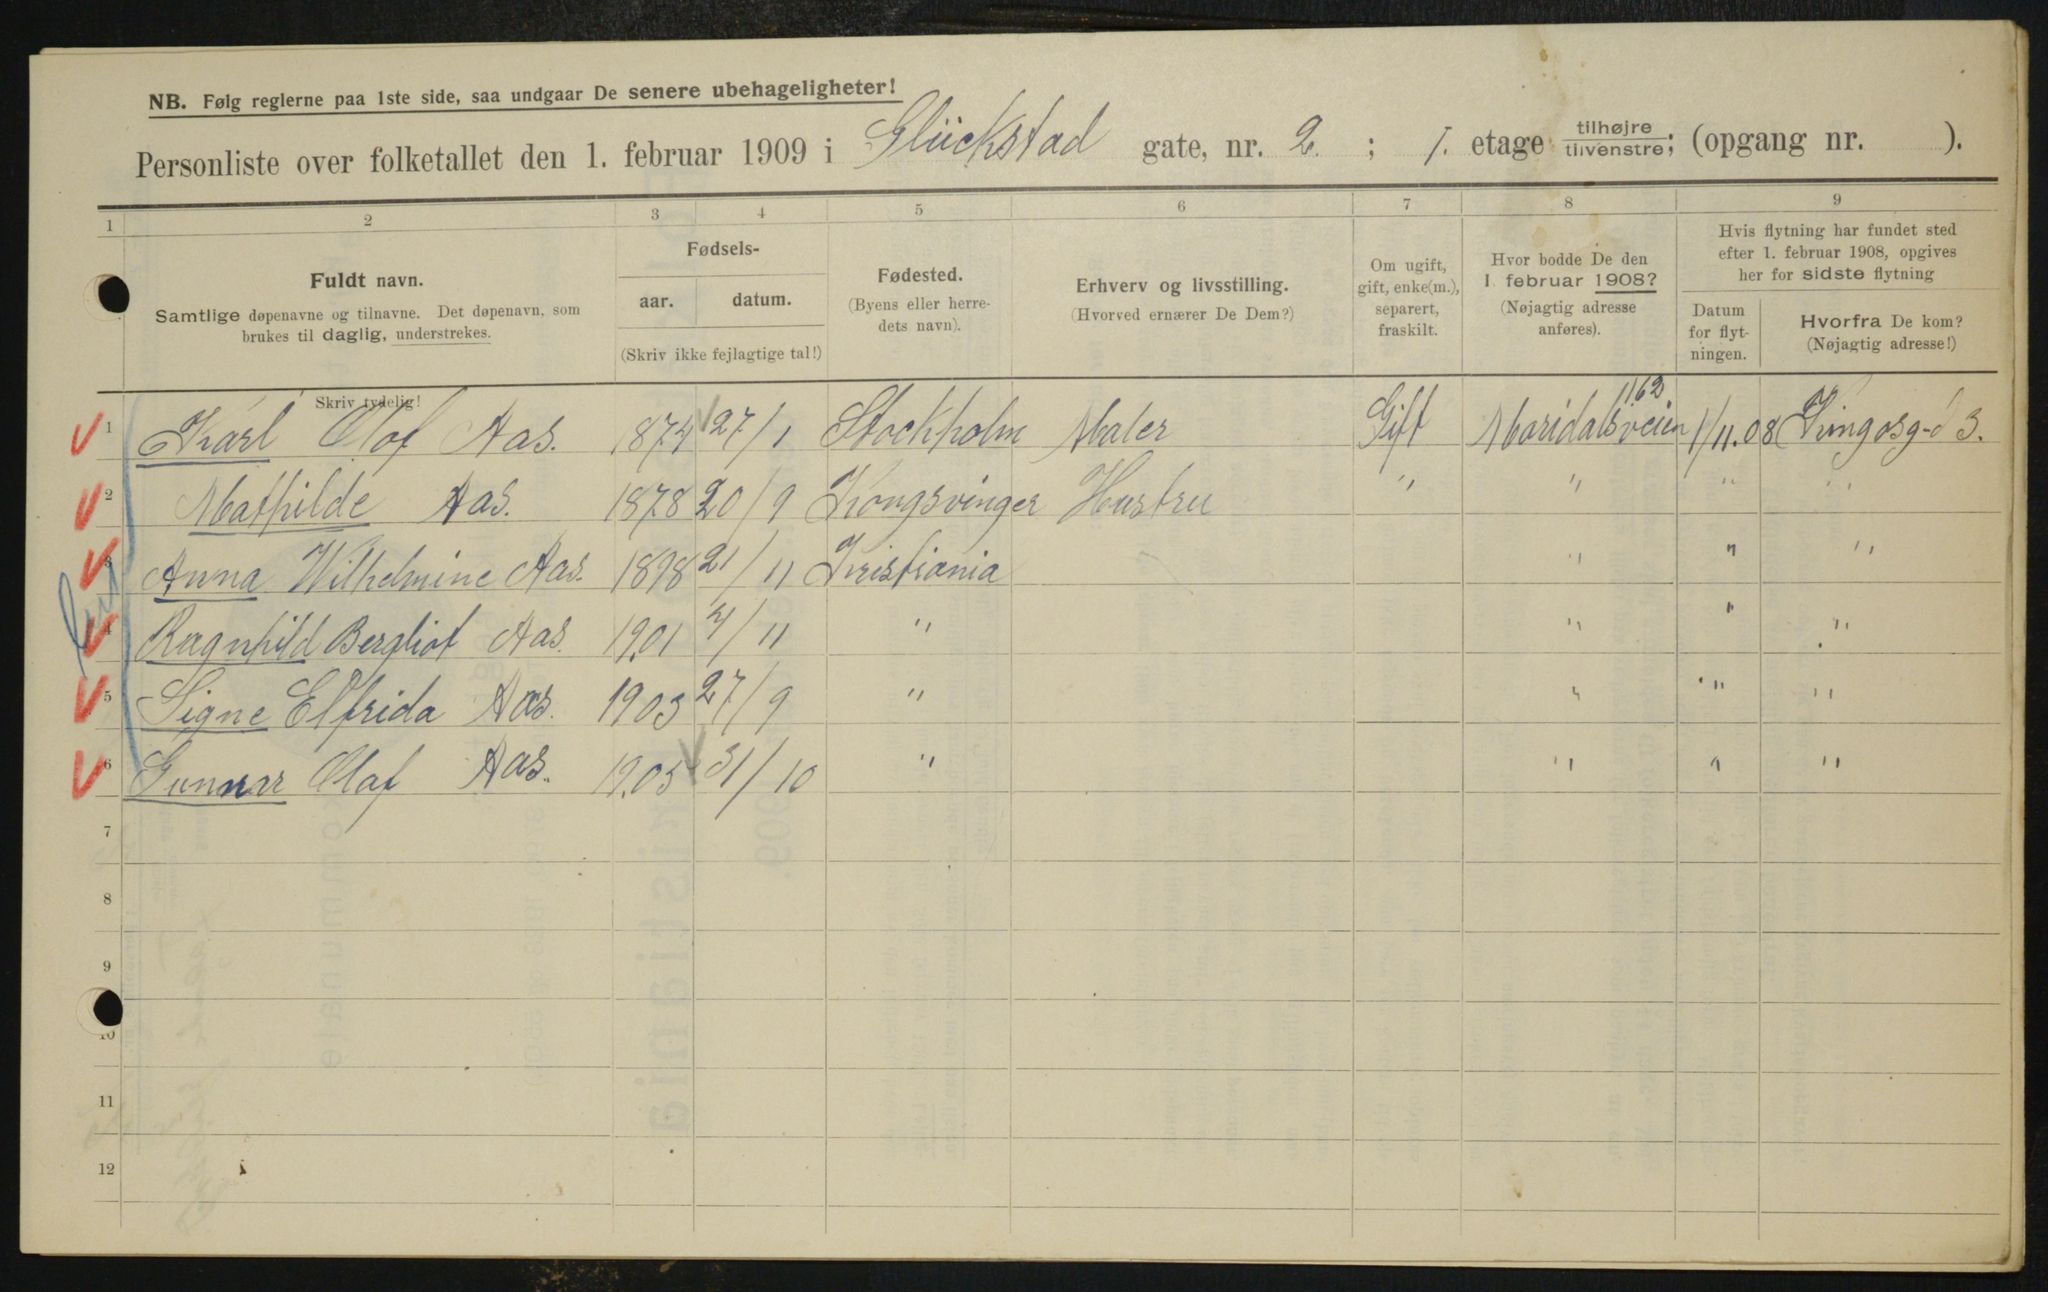 NB. Følg reglerne paa 1ste side, saa undgaar De senere ubehageligheter!
Personliste over folketallet den 1. februar 1909 i Glückstad gate, nr. 2. ; 1. etage tilhøjre/tilvenstre; (opgang nr. ).
1 2 3 4 5 6 7 8 9
Fuldt navn.
Samtlige døpenavne og tilnavne. Det døpenavn, som
brukes til daglig, understrekes.
Skriv tydelig!
Fødsels-
aar. datum.
(Skriv ikke fejlagtige tal!)
Fødested.
(Byens eller herre-
dets navn).
Erhverv og livsstilling.
(Hvorved ernærer De Dem?)
Om ugift,
gift, enke(m.),
separert,
fraskilt.
Hvor bodde De den
1. februar 1908?
(Nøjagtig adresse
anføres).
Hvis flytning har fundet sted
efter 1. februar 1908, opgives
her for sidste flytning
Datum
for flyt-
ningen.
Hvorfra De kom?
(Nøjagtig adresse!)
1 Karl Olof Aas. 1874 27/1 Stockholm Maler Gift Maridalsveien 162 1/11.08 Kingosg-d 3.
2 Mathilde Aas. 1878 20/9 Kongsvinger Hustru " " " "
3 Anna Wilhelmine Aas. 1898 21/11 Kristiania " " "
4 Ragnhild Bergliot Aas. 1901 7/11 " " " "
5 Signe Elfrida Aas. 1903 27/9 " " " "
6 Gunnar Olaf Aas. 1905 31/10 " " " "
7
8
9
10
11
12